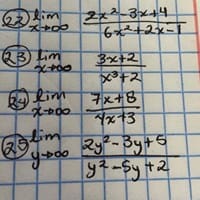 22) lim x→∞ (2x² - 3x + 4)/(6x² + 2x - 1)
23) lim x→∞ (3x + 2)/(x³ + 2)
24) lim x→∞ (7x + 8)/(4x + 3)
25) lim y→∞ (2y² - 3y + 5)/(y² - 5y + 2)